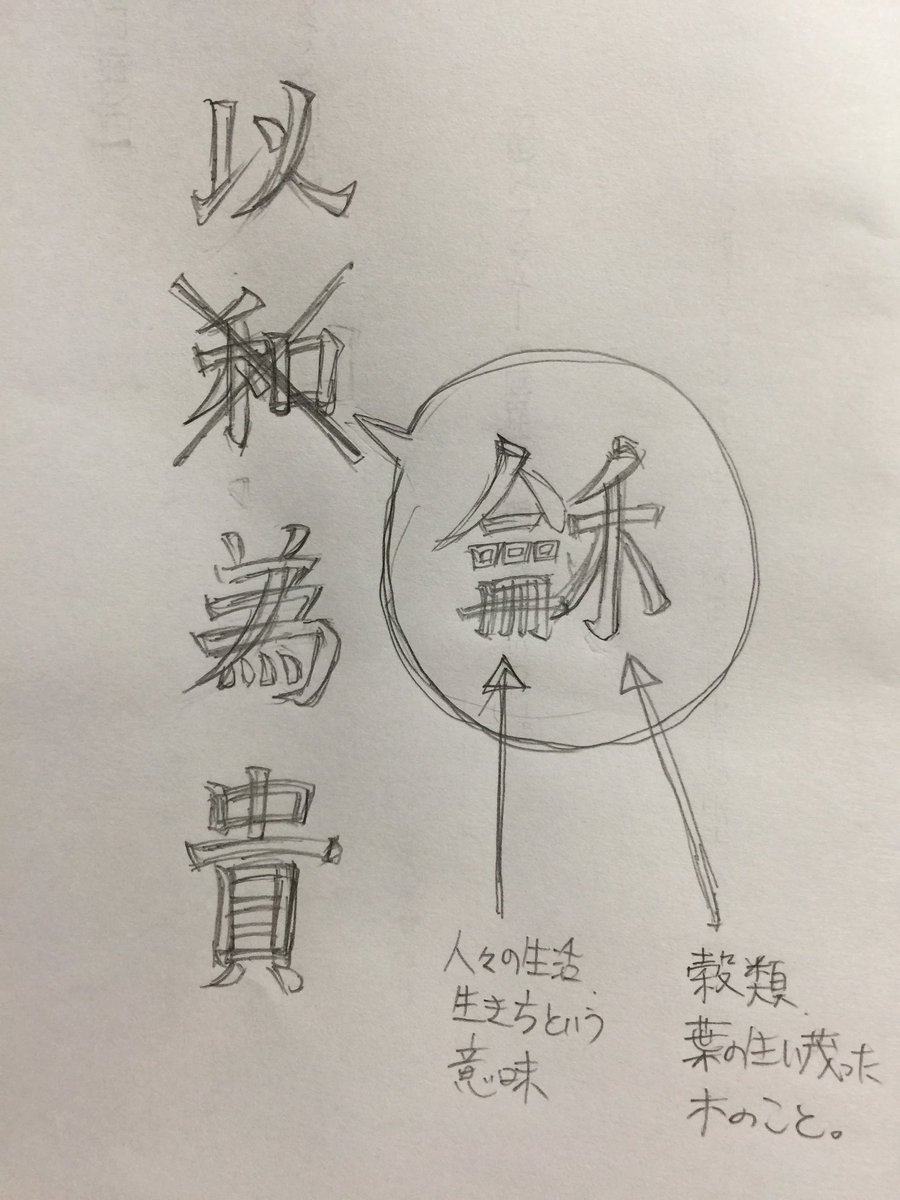 以和為貴
龢
人々の生活、
生きちという
意味
穀類、
葉の生い茂った
木のこと。